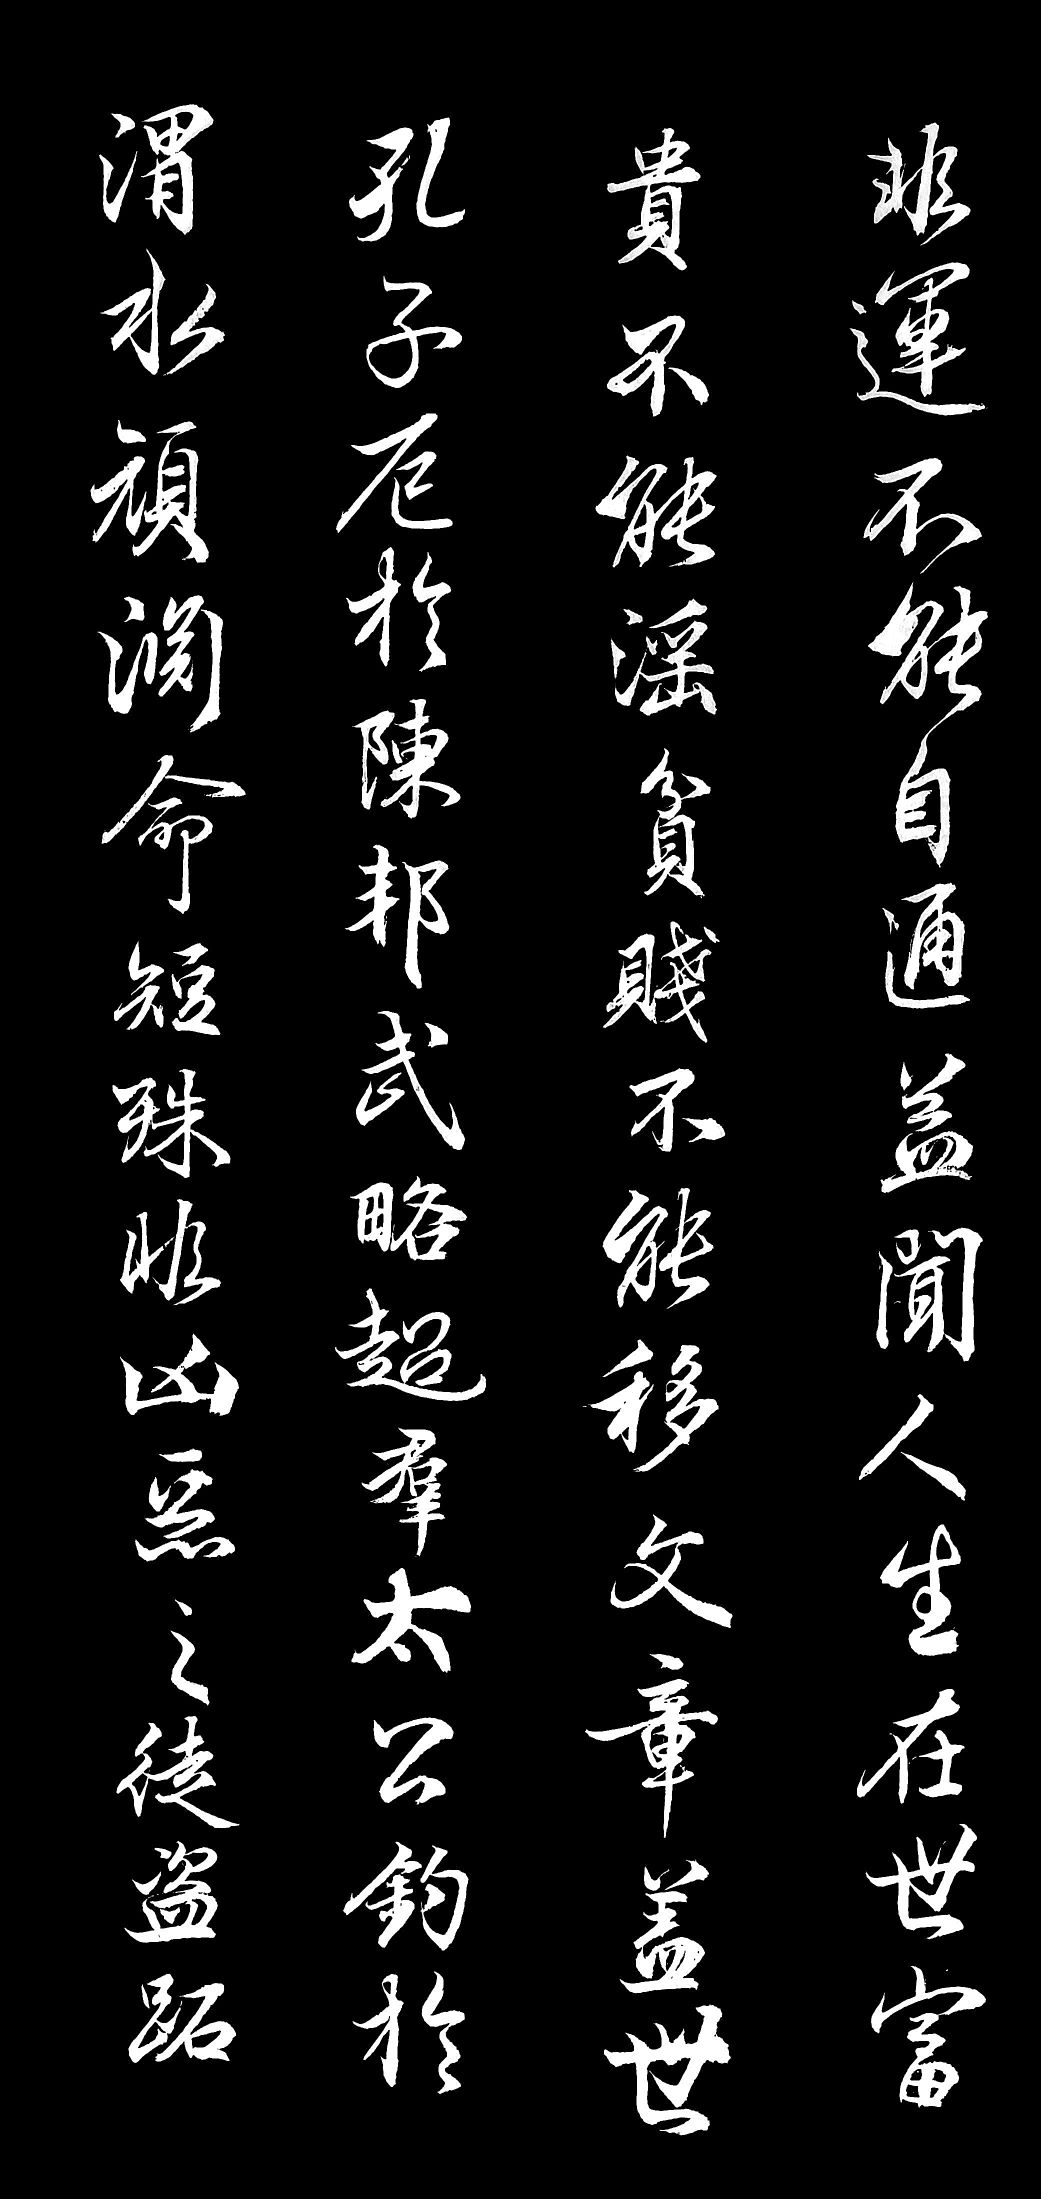 非運不能自通蓋聞人生在世富
貴不能淫貧賤不能移文章蓋世
孔子厄於陳邦武略超羣太公釣於
渭水顏淵命短殊非凶惡之徒盜跖